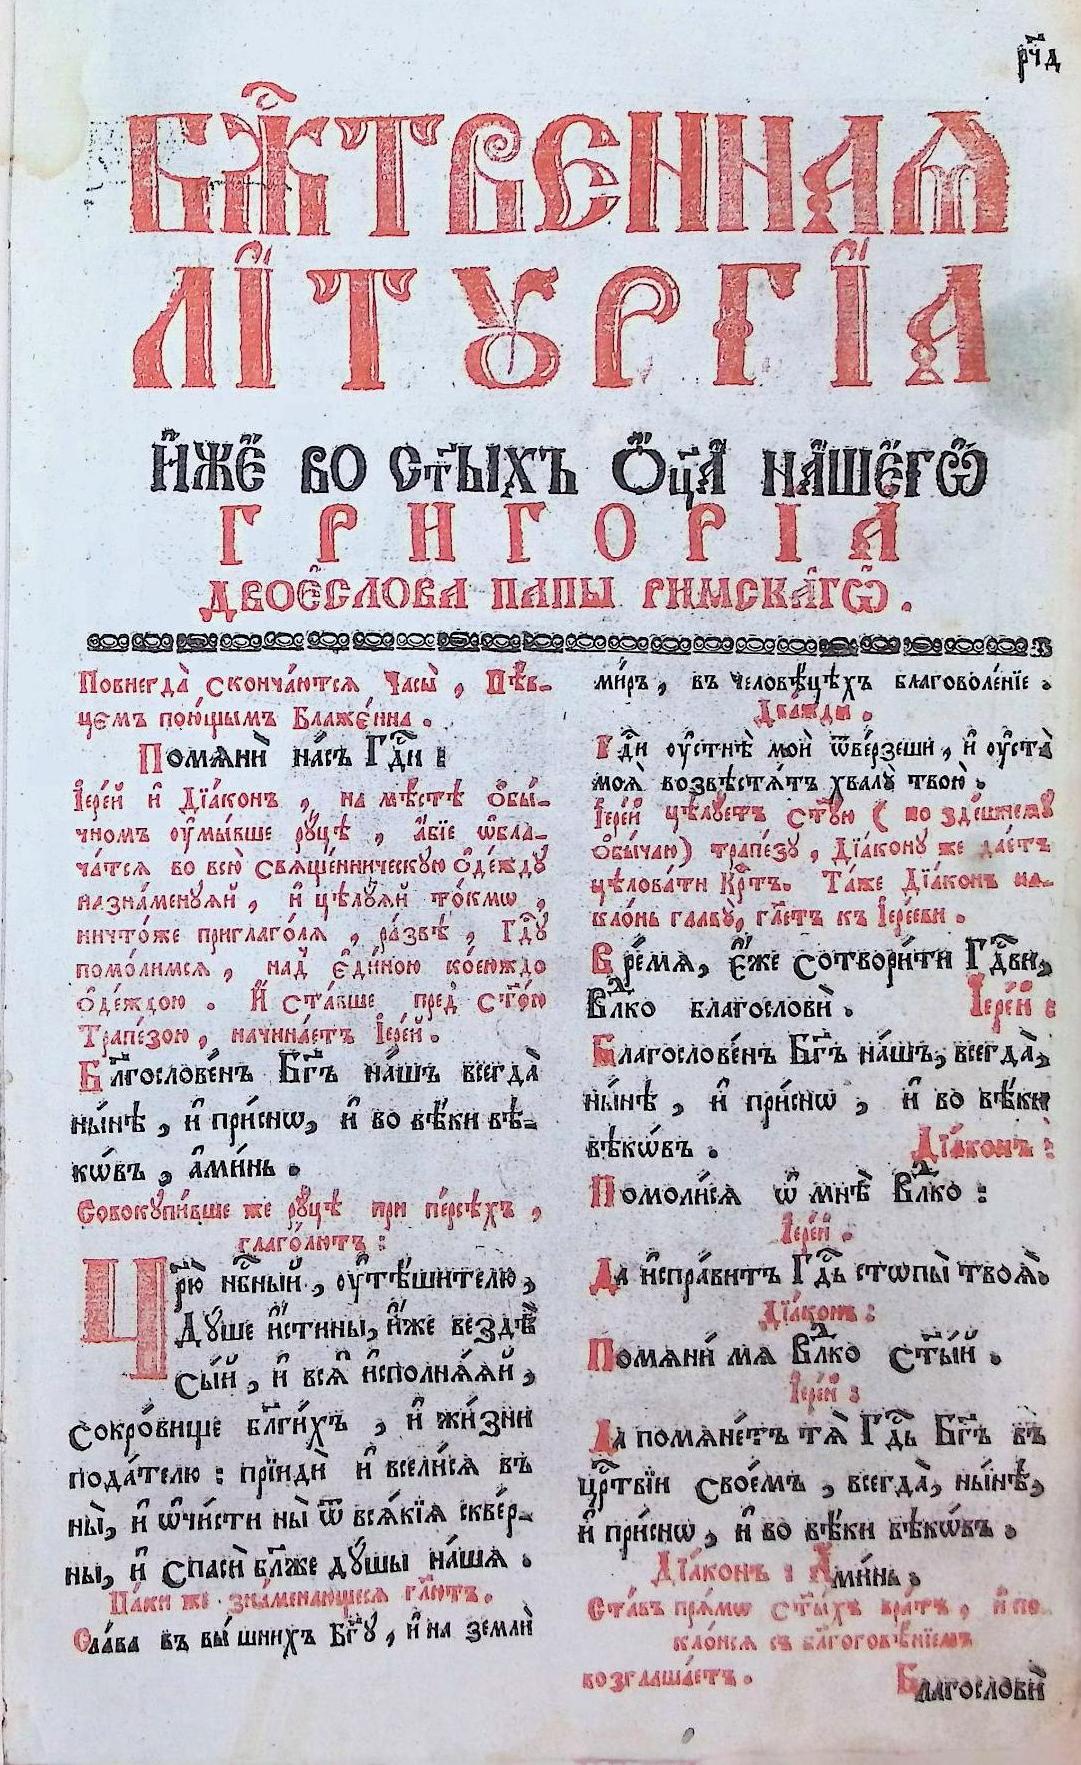 рч҃д
БЖ҃ТВЕННАѦ
ЛІТꙊРГІА
И҆́же во ст҃ыхъ Ѻ҆ц҃а̀ на́шегѡ
ГРИГОРІА
ДВОЕСЛОВА ПАПЫ РИМСКАГѠ.
Повнегда̀ скончаю́тся Часы̀, Пѣв-
цемъ пою́щымъ Блаже́нна.
Помянѝ на́съ Гдⷭ҇и :
Іере́й и҆ Дїа́конъ, на мѣ́стѣ ѻ҆бы́-
чномъ ᲂу҆мы́вше рꙋ́цѣ, а҆́бїе ѡ҆бла-
ча́тся во всю̀ свяще́нническꙋю ѻ҆де́ждꙋ
назна́менꙋяй, и҆ цѣлꙋ́яй то́кмѡ,
ничто́же приглаго́ля, ра́звѣ, Гдⷭ҇ꙋ
помо́лимся, над̾ є҆ди́ною ко́еюждо
ѻ҆де́ждою. И҆ ста́вше пред̾ ст҃о́ю
Трапе́зою, начина́етъ Іере́й.
Блгⷭ҇ослове́нъ Бг҃ъ на́шъ всегда̀
ны́нѣ, и҆ при́снѡ, и҆ во вѣ́ки вѣ-
кѡ́въ, а҆ми́нь.
Совокꙋпи́вше же рꙋ́цѣ при пе́рсѣхъ,
глаго́лютъ :
Цр҃ю̀ нбⷭ҇ный, ᲂу҆тѣ́шителю,
Дꙋ́ше и҆́стины, и҆́же вездѣ̀
сы́й, и҆ вся̑ и҆сполня́яй,
сокро́вище бл҃ги́хъ, и҆ жи́зни
пода́телю : прїидѝ и҆ всели́ся въ
ны̀, и҆ ѡ҆чи́сти ны̀ ѿ вся́кїя скве́р-
ны, и҆ спасѝ бл҃же дꙋ́шы на́шя.
Па́ки же зна́менающеся гл҃ютъ.
Сла́ва въ вы́шнихъ Бг҃ꙋ, и҆ на землѝ
ми́ръ, въ человѣ́цѣхъ благоволе́нїе.
Два́жды.
Гдⷭ҇и ᲂу҆стнѣ̀ моѝ ѿве́рзеши, и҆ ᲂу҆ста̀
моя̀ возвѣстя́тъ хвалꙋ̀ твою̀.
Іере́й цѣлꙋ́етъ ст҃ꙋ́ю ( по зде́шнемꙋ
ѻ҆бы́чаю) трапе́зꙋ, Дїа́конꙋ же дае́тъ
цѣлова́ти Крⷭ҇тъ. Та́же Дїа́конъ на-
кло́нь галвꙋ̀, гл҃етъ къ Іере́еви.
Вре́мя, є҆́же сотвори́ти Гдⷭ҇ви,
Влⷣко благословѝ. Іере́й :
Благослове́нъ Бг҃ъ на́шъ, всегда̀,
ны́нѣ, и҆ при́снѡ, и҆ во вѣ́ки
вѣкѡ́въ. Дїа́конъ :
Помоли́ся ѡ҆ мнѣ̀ Влⷣко :
Іере́й.
Да и҆спра́витъ Гдⷭ҇ь стѡпы̀ твоя̀.
Дїа́конъ :
Помяни́ мя Влⷣко ст҃ы́й.
Іере́й :
Да помяне́тъ тя̀ Гдⷭ҇ь Бг҃ъ въ
црⷭ҇твїи свое́мъ, всегда̀, ны́нѣ,
и҆ при́снѡ, и҆ во вѣ́ки вѣкѡ́въ.
Дїа́конъ : А҆ми́нь.
Ста́въ пря́мѡ ст҃ы́хъ вра́тъ, и҆ по-
кло́нся съ бл҃гоговѣ́нїемъ
возглаша́етъ. Благословѝ